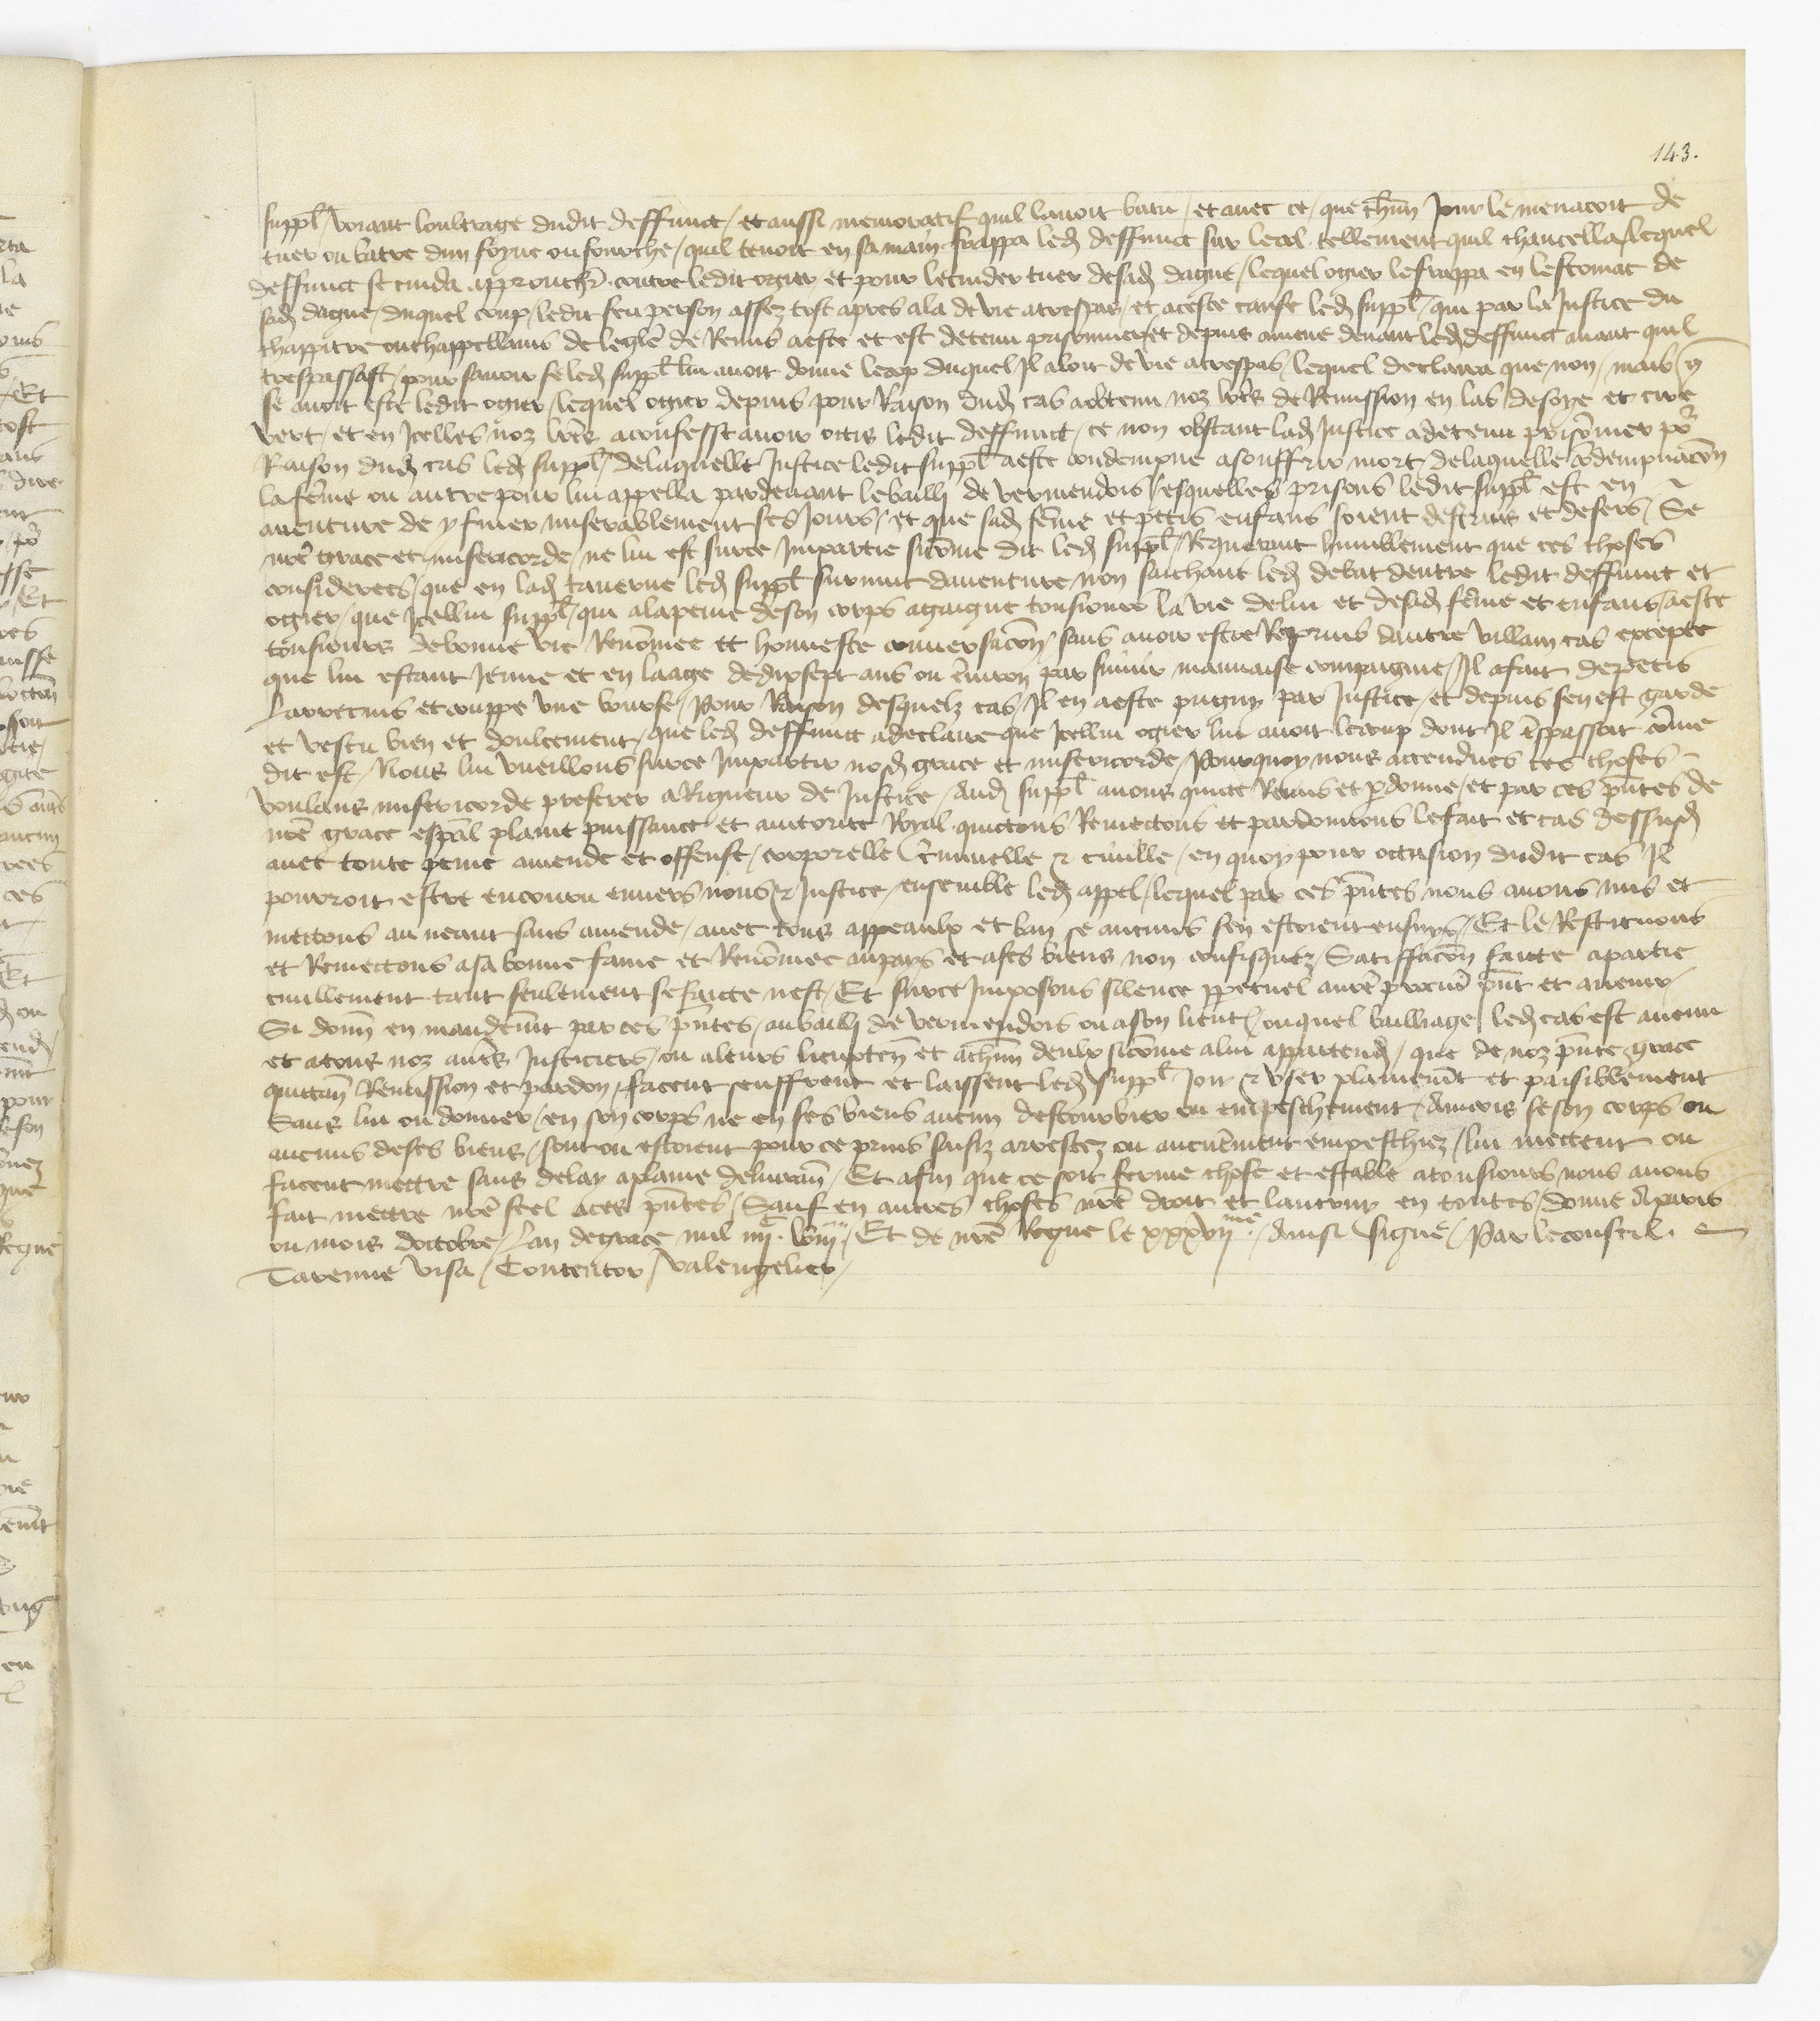 143.
suppl̄ voiant loultrage dudit deffunct / et aussi memoratif quil lavoit batu / et avec ce / que ch̄un jour le menacoit de
tuer ou batre dun foyne ou fourche / quil tenoit en sa main frappa led̄ deffunct sur le col tellement quil chancella / lequel
deffunct se cuida approucher contre ledit ogier et pour le cuider tuer de sad̄ dague / lequel ogier le frappa en lestomac de
sad̄ dague / duquel coup / ledit feu person assez tost apres ala de vie a trespas / et a ceste cause led̄ suppl̄ / qui par la Justice du
chappitre ou chappellains de leglē de Reims a este et est detenu prisonnier et depuis amene devant led̄ deffunct avant quil
trespassast / pour savoir se led̄ suppl̄ lui avoit donne le cop duquel Il aloit de vie a trespas / lequel declaira que non / mais q̄
se avoit este ledit ogier / lequel ogier depuis pour Raison dud̄ cas a obtenu noz lr̄es de Remission en las de soye et cire
vert / et en Icelles noz lr̄es a confesse avoir occis ledit deffunct / ce non obstant lad̄ Justice a detenu prisōnier po
Raison dud̄ cas led̄ suppl̄ / de laquelle Justice ledit suppl̄ a este condempne a souffrir mort / de laquelle cōdempnacōn
la fēme ou autre pour lui appella par devant le bailli de vermendois / esquelles prisons ledit suppl̄ est en
aventure de y finer miserablement ses Jours / et que sad̄ fēme et petis enfans soient destruis et desers / Se
nr̄e grace et misericorde / ne lui est sur ce Impartie si cōme dit led̄ suppl̄ / Requerant humblement que ces choses
considerees / que en lad̄ taverne led̄ suppl̄ survint daventure non saichant led̄ debat dentre ledit deffunct et
ogier / que Icellui suppl̄ / qui a la peine de son corps a gaigne tousiours la vie de lui et de sad̄ fēme et enfans / a este
tousiours de bonne vie Renōmee et honneste conversacōn / sans avoir este Reprins dautre villain cas excepte
que lui estant Jeune et en laage de dix sept ans ou ēnviron par suivir mauvaise compaignie / Il a fait de petis
Larrecins et couppe une bourse / Pour Raison desquelz cas / Il en a este pugny par Justice / et depuis sen est garde
et vescu bien et doulcement / que led̄ deffunct a declaire que Icellui ogier lui avoit le coup dont Il t̄spassoit cōme
dit est / Nous lui vueillons sur ce Impartir nosd̄ grace et misericorde / Pourquoy nous attendues ces choses
voulans misericorde preferer a Rigueur de Justice / Aud̄ suppl̄ avons quicte Remis et p̄donne / et par ces pn̄tes de
nr̄e grace esp̄al plaine puissance et auctorite Royal quictons Remectons et pardonnons le fait et cas dessusd̄
avec toute peine amende et offense / corporelle c̄minelle & civille / en quoy pour occasion dudit cas Il
pourroit estre encouru envers nous & Justice / ensemble led̄ appel / lequel par ces pn̄tes nous avons mis et
mectons au neant sans amende / avec tous appeaulx et ban se aucuns sen estoient ensuys / Et le Restituons
et Remectons a sa bonne fame et Renōmee au pays et a ses biens non confisquez / Satiffacōn faicte a partie
civillement tant seulement se faicte nest / Et sur ce Imposons silence p̄petuel a nr̄e procur̄ pn̄t et avenir
Si donn̄ en mandem̄t par ces pn̄tes / au bailli de vermendois ou a son lieut̄ / ouquel bailliage led̄ cas est avenu
et a tous noz autr̄es Justiciers / ou a leurs lieuxten̄ et a ch̄un deulx si cōme a lui appartend̄ / que de noz pn̄te grace
quictan̄ Remission et pardon / facent seuffrent et laissent led̄ suppl̄ Joir & user plainem̄t et paisiblement
Sans lui ou donner / en son corps ne en ses biens aucun destourbier ou empeschement / Aincois se son corps ou
aucuns de ses biens / sont ou estoient pour ce prins saisiz arrestez ou aucunēment empeschiez / lui mectent ou
facent mectre sans delay a plaine delivran̄ / Et afin que ce soit ferme chose et estable a tousiours nous avons
fait mectre nr̄e seel a ces pn̄tes / Sauf en autres choses nr̄e droit et lautruy en toutes / Donne a paris
ou mois doctobre / Lan de grace mil iiijc. lviij / Et de nr̄e Regne le xxxvijme. / Ainsi signe / Par le conseil.
Tarenne visa / Contentor / Valengelier /